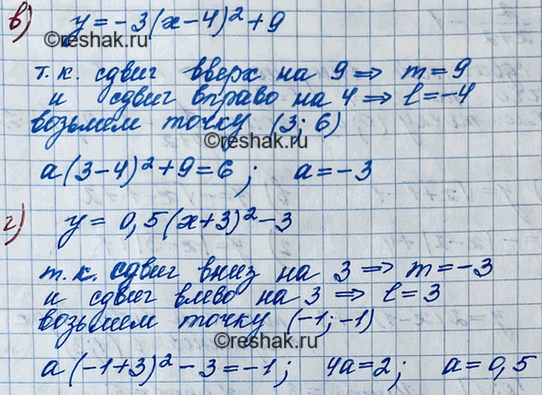 в) y = -3(x-4)² + 9
©reshak.ru
т.к. сдвиг вверх на 9 ⇒ m = 9
и сдвиг вправо на 4 ⇒ l = -4
возьмем точку (3; 6)
©reshak.ru
a(3-4)² + 9 = 6; a = -3
г) y = 0,5(x+3)² - 3
©reshak.ru
т.к. сдвиг вниз на 3 ⇒ m = -3
и сдвиг влево на 3 ⇒ l = 3
возьмем точку (-1; -1)
©reshak.ru
a(-1+3)² - 3 = -1; 4a = 2; a = 0,5